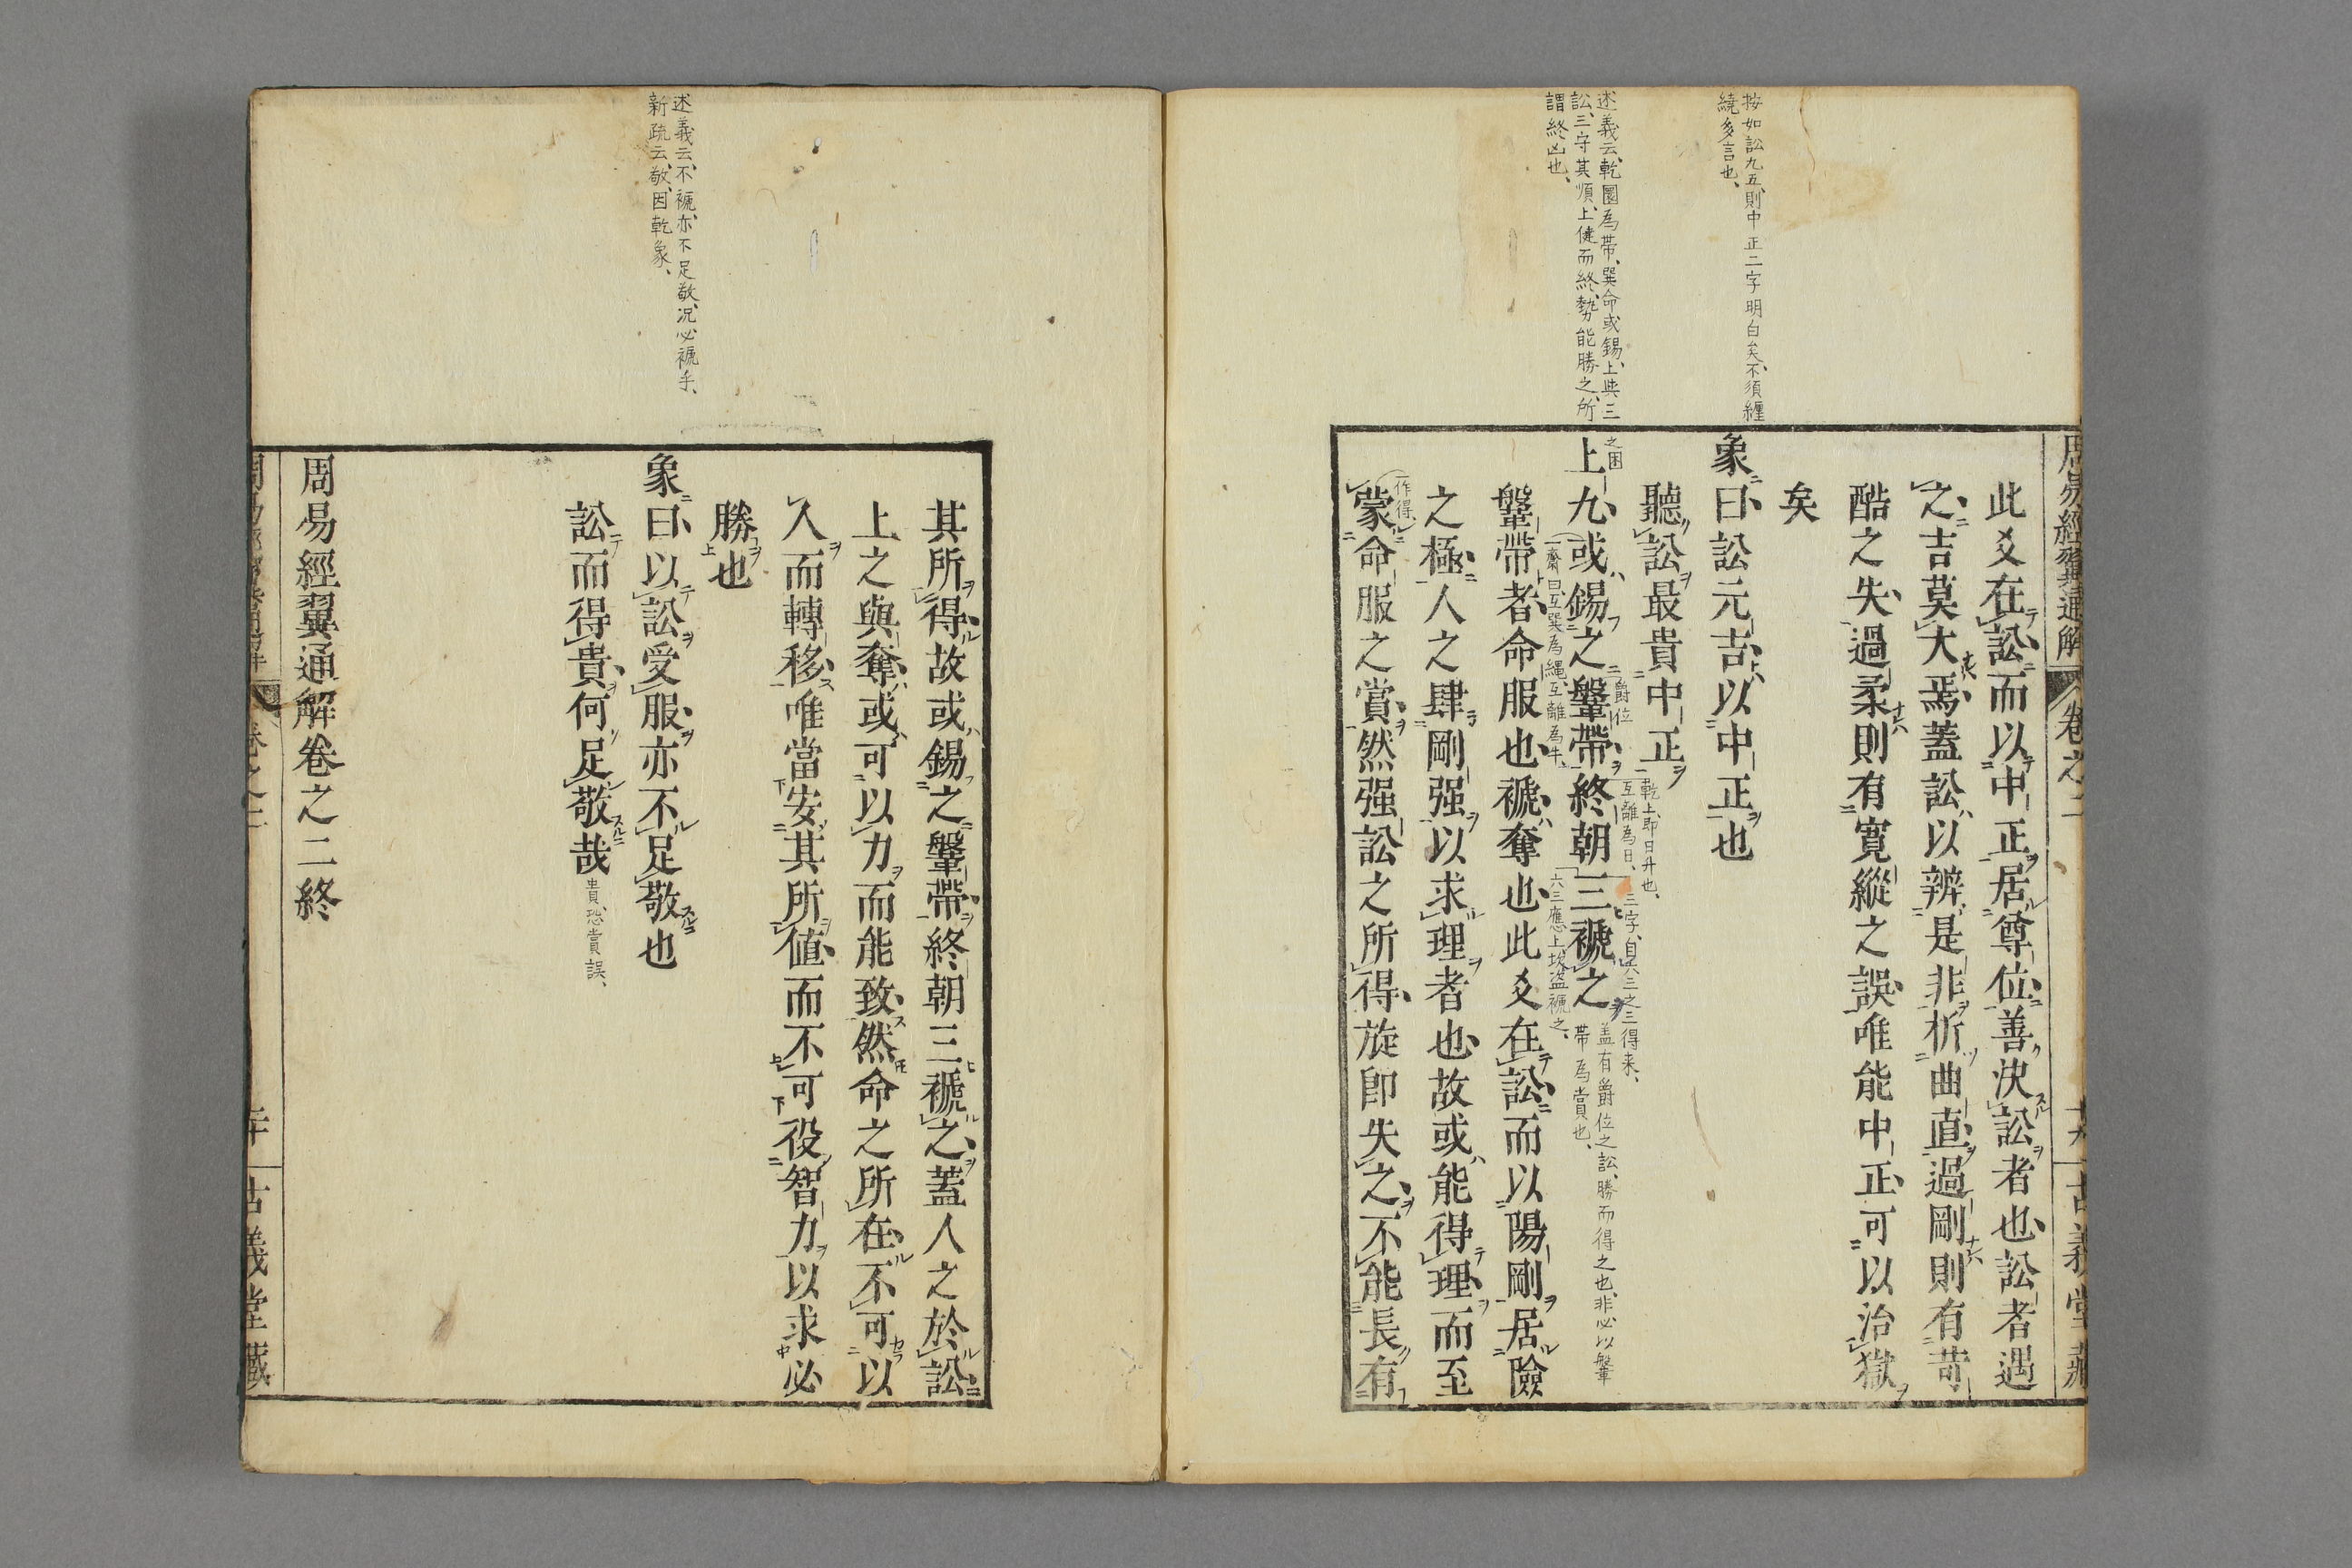 按如訟九五、則中正二字明白矣、不須纏
繞多言也、
述義云、乾圜為帶、巽命或錫、上與三
訟、三守其順、上健而終、勢能勝之、所
謂終凶也、
周易經翼通解 卷之二 古義堂藏
此爻在訟而以中正居尊位善決訟者也訟者遇
之吉莫大焉蓋訟以辨是非析曲直過剛則有苛
酷之失過柔則有寬縱之誤唯能中正可以治獄
矣
象曰訟元吉以中正也
聽訟最貴中正
乾上、即日升也、
互離為日、
三字、自六三之三得来、
之困
上九或錫之鞶帶終朝三褫之
爵位
蓋有爵位之訟、勝而得之也、非必以鞶
帶為賞也、
一齋曰、互巽為繩、互離為牛、
六三應上、坎盗褫之、
鞶帶者命服也褫奪也此爻在訟而以陽剛居險
之極人之肆剛强以求理者也故或能得理而至
一作得
蒙命服之賞然强訟之所得旋即失之不能長有
述義云、不褫、亦不足敬、况必褫乎、
新疏云、敬、因乾象、
其所得故或錫之鞶帶終朝三褫之蓋人之於訟
上之與奪或可以力而能致然命之所在不可以
人而轉移唯當安其所值而不可役智力以求必
勝也
象曰以訟受服亦不足敬也
訟而得貴何足敬哉
貴、恐賞誤、
周易經翼通解卷之二終
古義堂藏